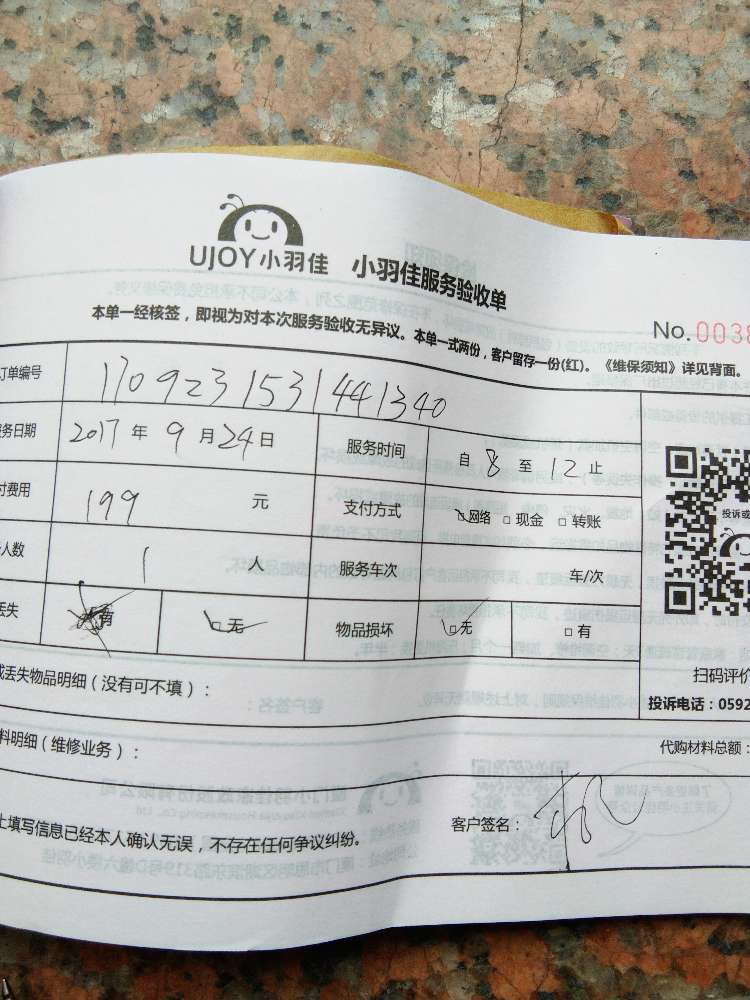 UJOY小羽佳 小羽佳服务验收单
No.0038
本单一经核签，即视为对本次服务验收无异议。本单一式两份，客户留存一份(红)。《维保须知》详见背面。
订单编号 1709231531441340
务日期 2017 年 9 月 24 日 服务时间 自 8 至 12 止
付费用 199 元 支付方式 □网络 □现金 □转账
人数 1 人 服务车次 车/次
丢失 □有 □无 物品损坏 □无 □有
投诉或
扫码评价
或丢失物品明细（没有可不填）：
投诉电话：0592
料明细（维修业务）：
代购材料总额：
上填写信息已经本人确认无误，不存在任何争议纠纷。
客户签名：